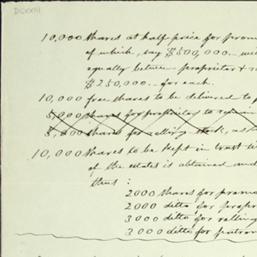 DCXXIII
10,000 shares at half price for promo
of which, say $500,000 – we
equally between proprietor & 
$250,000 – for each.
10,000 free shares to be delivered to p
5,000 shares for proprietor to remain
5,000 shares for selling stock, as
10,000 shares to be kept in trust un
of the estates is obtained and
thus :
2000 shares for promo
2000 ditto for propr
3000 ditto for selling
3000 ditto for